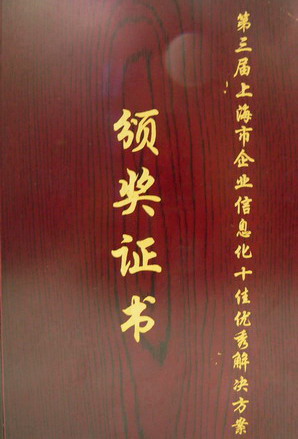 第三届上海市企业信息化十佳优秀解决方案
颁奖证书